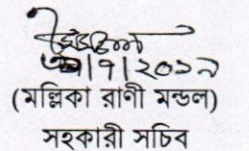 /৭/২০১৯
(মল্লিকা রাণী মন্ডল)
সহকারী সচিব